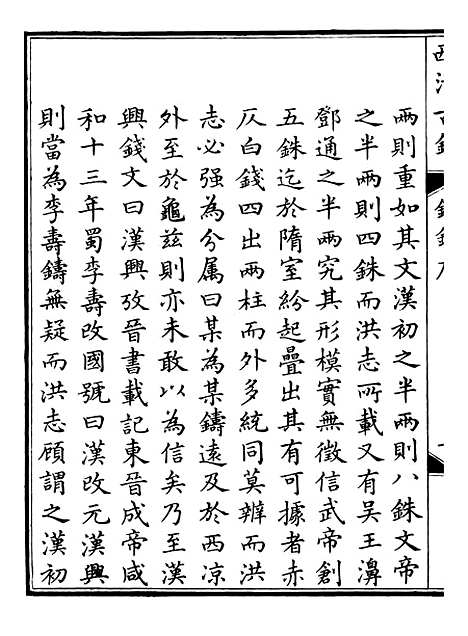 兩則重如其文漢初之半兩則八銖文帝
之半兩則四銖而洪志所載又有吳王濞
鄧通之半兩究其形模實無徵信武帝創
五銖迄於隋室紛起疊出其有可據者赤
仄白錢四出兩柱而外多統同莫辨而洪
志必强為分属曰某為某鑄遠及於西凉
外至於龜茲則亦未敢以為信矣乃至漢
興錢文曰漢興攷晉書載記東晉成帝咸
和十三年蜀李壽改國號曰漢改元漢興
則當為李壽鑄無疑而洪志顧謂之漢初